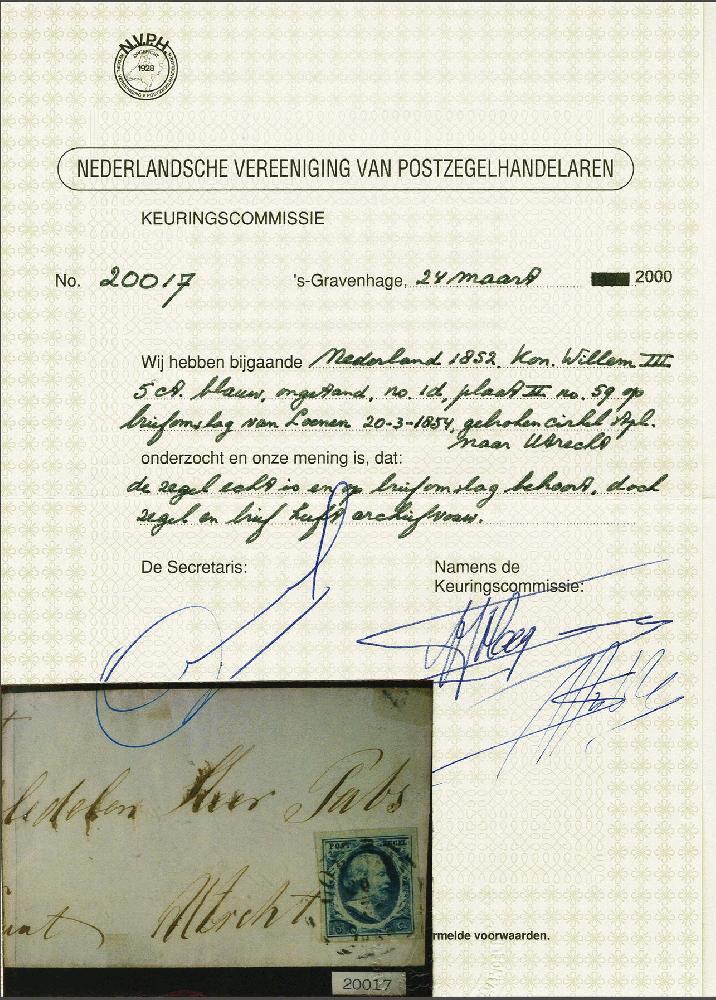 N.V.P.H.
1928
NEDERLANDSCHE VEREENIGING VAN POSTZEGELHANDELAREN
KEURINGSCOMMISSIE
No. 20017 's-Gravenhage, 24 maart 2000
Wij hebben bijgaande Nederland 1852. Kon. Willem III
5 ct. blauw, ongetand, no. 1d, plaat II no. 59 op
briefomslag van Loenen 20-3-1854, gebroken cirkel stpl.
naar Utrecht
onderzocht en onze mening is, dat:
de zegel echt is en op briefomslag behoort, doch
zegel en brief heeft archiefvouw.
De Secretaris: Namens de
Keuringscommissie:
Heer
Utrecht
POST ZEGEL
rmelde voorwaarden.
20017